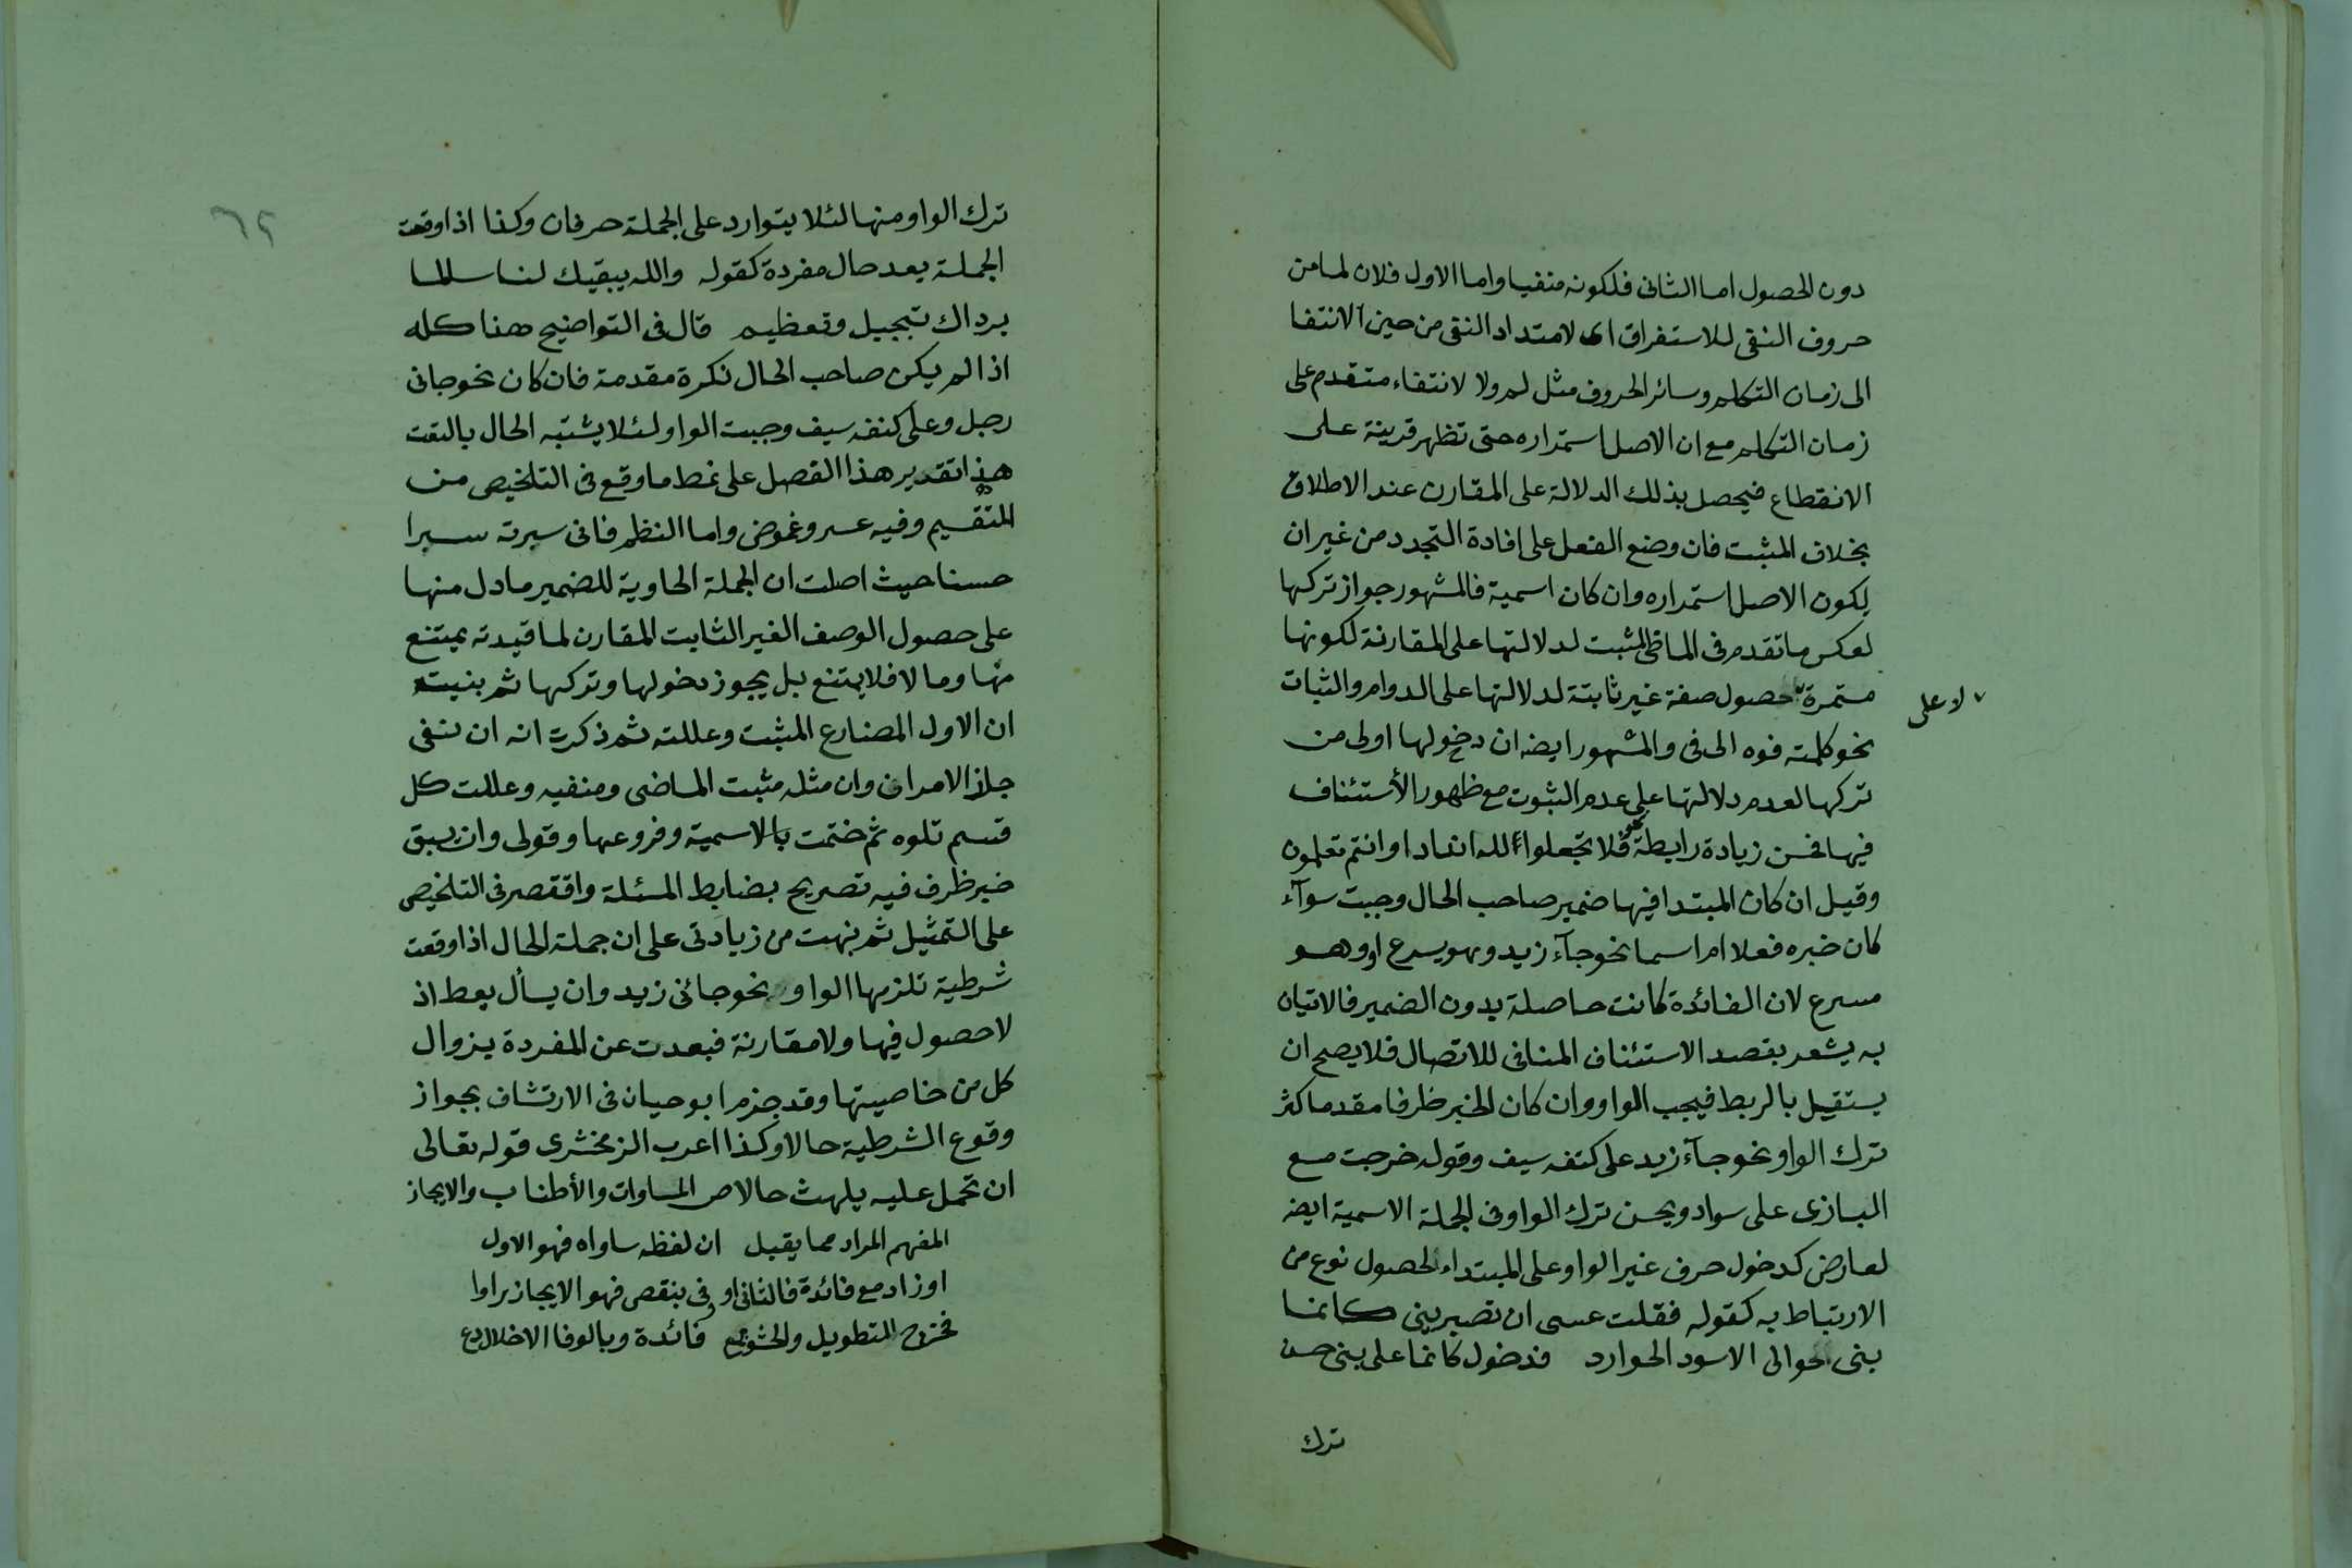 دون الحصول اما الثانى فلكونه منفيا واما الاول فلان لما من
حروف النفى للاستغراق اى لامتداد النفى من حين الانتفا
الى زمان التكلم وسائر الحروف مثل لم ولا لانتفاء متقدم على
زمان التكلم مع ان الاصل استمراره حتى تظهر قرينة على
الانقطاع فيحصل بذلك الدلالة على المقارن عند الاطلاق
بخلاف المثبت فان وضع الفعل على افادة التجدد من غير ان
يكون الاصل استمراره وان كان اسمية فالمشهور جواز تركها
لعكس ما تقدم فى الماضى المثبت لدلالتها على المقارنة لكونها
مستمرة حصول صفة غير ثابتة لدلالتها على الدوام والثبات
لا على
نحو كلمته فوه الى فى والمشهور ايضه ان دخولها اولى من
تركها لعدم دلالتها على عدم الثبوت مع ظهور الأستئناف
فيها فحسن زيادة رابطة نحو فلا تجعلوا لله اندادا وانتم تعلمون
وقيل ان كان المبتدا فيها ضمير صاحب الحال وجبت سوآء
كان خبره فعلا ام اسما نحو جآء زيد وهو يسرع او وهو
مسرع لان الفائدة كانت حاصلة بدون الضمير فالاتيان
به يشعر بقصد الاستئناف المنافى للاتصال فلا يصح ان
يستقل بالربط فيجب الواو وان كان الخبر ظرفا مقدما كثر
ترك الواو نحو جآء زيد على كتفه سيف وقوله خرجت مع
البازى على سواد ويحسن ترك الواو فى الجملة الاسمية ايضه
لعارض كدخول حرف غير الواو على المبتداء لحصول نوع من
الارتباط به كقوله فقلت عسى ان تصبرينى كانما
بنى حوالى الاسود الحوارد فدخول كانما على بنى حسن
ترك
٦٢
ترك الواو منها لئلا يتوارد على الجملة حرفان وكذا اذا وقعت
الجملة بعد حال مفردة كقوله والله يبقيك لنا سالما
برداك تبجيل وتعظيم قال فى التواضيح هذا كله
اذا لم يكن صاحب الحال نكرة مقدمة فان كان نحو جانى
رجل وعلى كنفه سيف وجبت الواو لئلا يشتبه الحال بالنعت
هذا تقدير هذا الفصل على نمط ما وقع فى التلخيص من
التقسيم وفيه عسر وغموض واما النظم فانى سيرته سيرا
حسنا حيث اصلت ان الجملة الحاوية للضمير ما دل منها
على حصول الوصف الغير الثابت المقارن لما قيدته يمتنع
منها وما لا فلا يمتنع بل يجوز دخولها وتركها ثم بنيت
ان الاول المضارع المثبت وعللته ثم ذكرت انه ان نفى
جاز الامران وان مثله مثبت الماضى ومنفيه وعللت كل
قسم تلوه ثم ختمت بالاسمية وفروعها وقولى وان سبق
خبر ظرف فيه تصريح بضابط المسئلة واقتصر فى التلخيص
على التمثيل ثم نبهت من زيادتى على ان جملة الحال اذا وقعت
شرطية تلزمها الواو نحو جائى زيد وان يسأل يعط اذ
لا حصول فيها ولا مقارنة فبعدت عن المفردة بزوال
كل من خاصيتها وقد جزم ابو حيان فى الارتشاف بجواز
وقوع الشرطية حالا وكذا اعرب الزمخشرى قوله تعالى
ان تحمل عليه يلهث حالا ص المساوات والأطناب والايجاز
المفهم المراد مما يقبل ان لفظه ساواه فهو الاول
او زاد مع فائدة فالثانى او وفى بنقص فهو الايجاز راوا
فخرج التطويل والحشو مع فائدة وبالوفا الاخلال دع